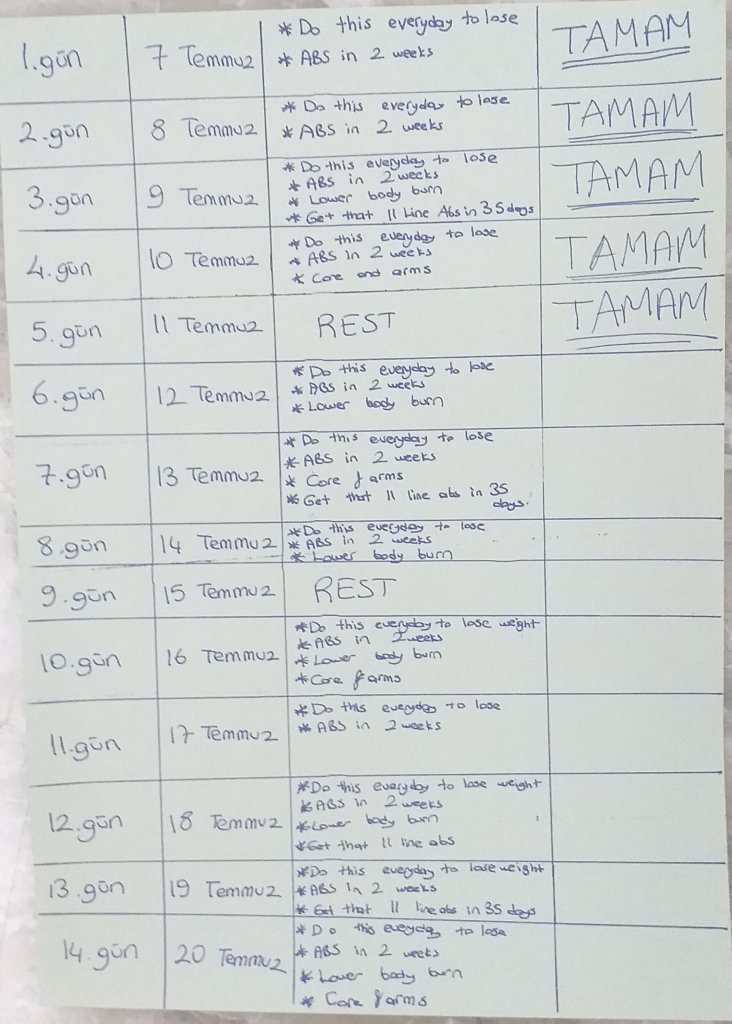 1.gün
7 Temmuz
* Do this everyday to lose
* ABS in 2 weeks
TAMAM
2.gün
8 Temmuz
* Do this everyday to lose
* ABS in 2 weeks
TAMAM
3.gün
9 Temmuz
* Do this everyday to lose
* ABS in 2 weeks
* Lower body burn
* Get that 11 Line Abs in 35 days
TAMAM
4.gün
10 Temmuz
* Do this everyday to lose
* ABS in 2 weeks
* Core and arms
TAMAM
5.gün
11 Temmuz
REST
TAMAM
6.gün
12 Temmuz
* Do this everyday to lose
* ABS in 2 weeks
* Lower body burn
7.gün
13 Temmuz
* Do this everyday to lose
* ABS in 2 weeks
* Core & arms
* Get that 11 line abs in 35
days.
8.gün
14 Temmuz
* Do this everyday to lose
* ABS in 2 weeks
* Lower body burn
9.gün
15 Temmuz
REST
10.gün
16 Temmuz
* Do this everyday to lose weight
* ABS in 2 weeks
* Lower body burn
* Core & arms
11.gün
17 Temmuz
* Do this everyday to lose
* ABS in 2 weeks
12.gün
18 Temmuz
* Do this everyday to lose weight
* ABS in 2 weeks
* Lower body burn
* Get that 11 line abs
13.gün
19 Temmuz
* Do this everyday to lose weight
* ABS in 2 weeks
* Get that 11 line abs in 35 days
14.gün
20 Temmuz
* Do this everyday to lose
* ABS in 2 weeks
* Lower body burn
* Core & arms